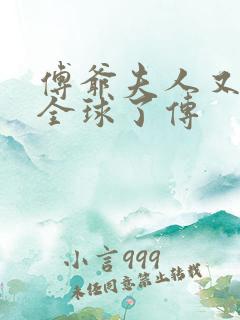 傅爷夫人又
全球了傅
小言999
未经同意禁止转载